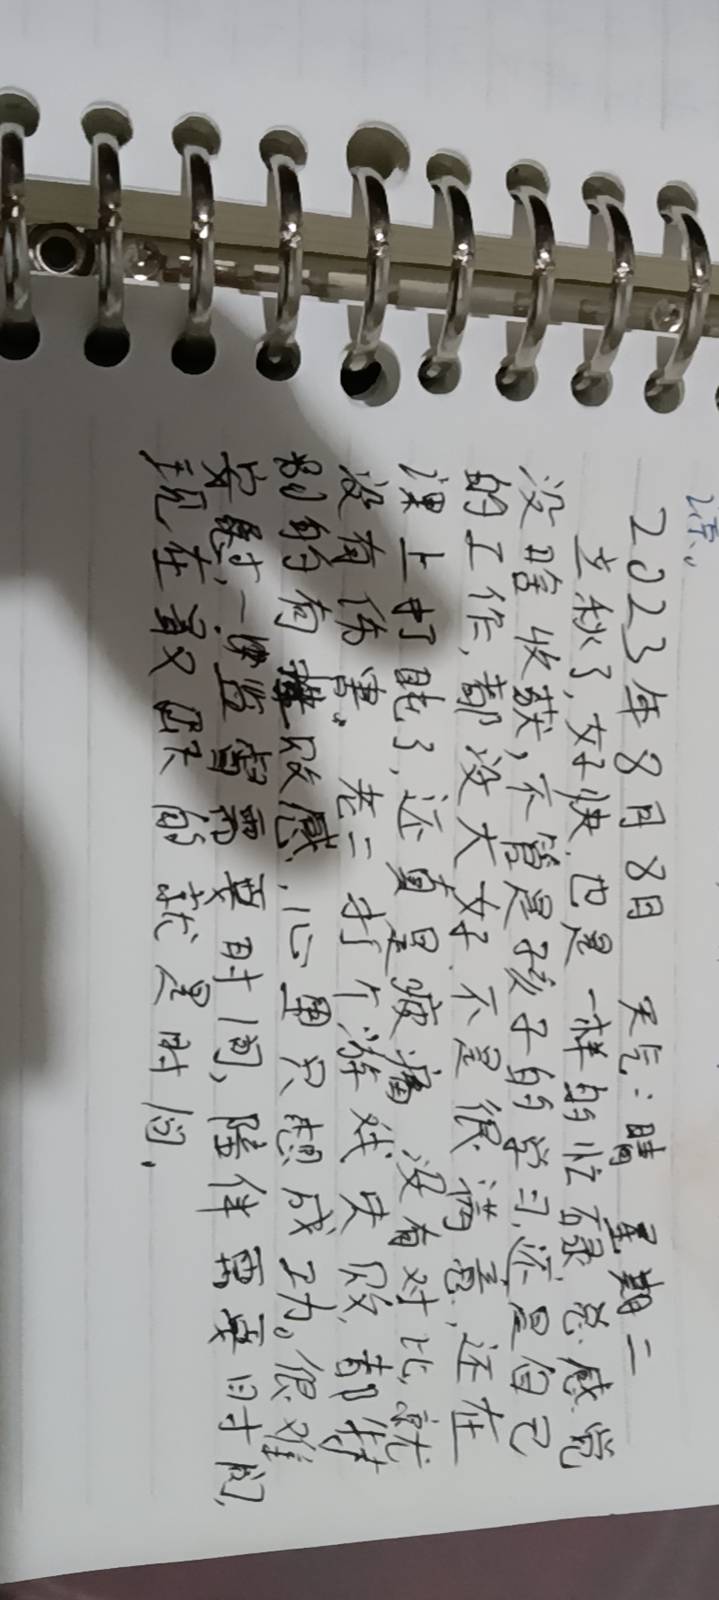 谅。
2023年8月8日 天气:晴 星期二
立秋了,好快,也是一样的忙碌,总感觉
没啥收获,不管是孩子的学习,还是自己
的工作,都没大好,不是很满意,还在
课上打盹了,还真是疲惫,没有对比,就
没有伤害。老二打个游戏失败,都特
别的有挫败感,心里只想成功。很难
安慰,监督需要时间,陪伴需要时间,
现在最缺的就是时间.